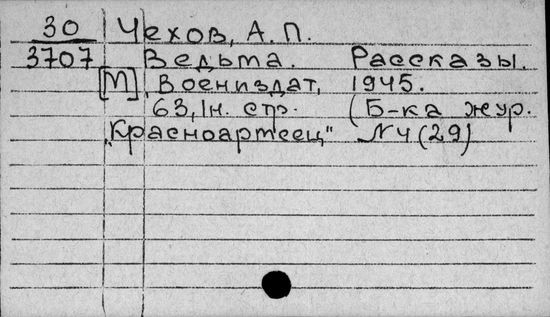 30 Чехов, А. П.
3707 Ведьма. Рассказы.
[М], Воениздат, 1945.
63, 1н. стр. (Б-ка жур.
„Красноартеец" № 4 (29)